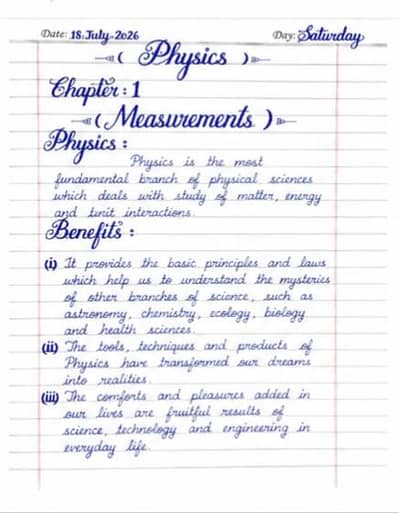 Date: 18.July.2026 Day: Saturday
Physics
Chapter : 1
Measurements
Physics :
Physics is the most
fundamental branch of physical sciences
which deals with study of matter, energy
and their interactions.
Benefits :
(i) It provides the basic principles and laws
which help us to understand the mysteries
of other branches of science, such as
astronomy, chemistry, ecology, biology
and health sciences.
(ii) The tools, techniques and products of
Physics have transformed our dreams
into realities.
(iii) The comforts and pleasures added in
our lives are fruitful results of
science, technology and engineering in
everyday life.